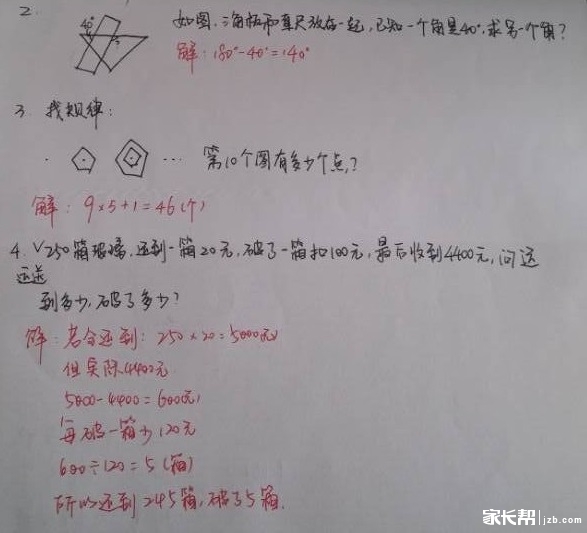 2.
40°
如图,三角板和直尺放在一起,已知一个角是40°,求另一个角?
解:180°-40°=140°
3. 找规律:
··· 第10个图有多少个点?
解:9×5+1=46(个)
4. 250箱玻璃,送到一箱20元,破了一箱扣100元,最后收到4400元,问送
运送
到多少,破了多少?
解:若全送到:250×20=5000元
但实际4400元
5000-4400=600(元)
每破一箱少120元
600÷120=5(箱)
所以送到245箱,破了5箱.
家长帮 jzb.com